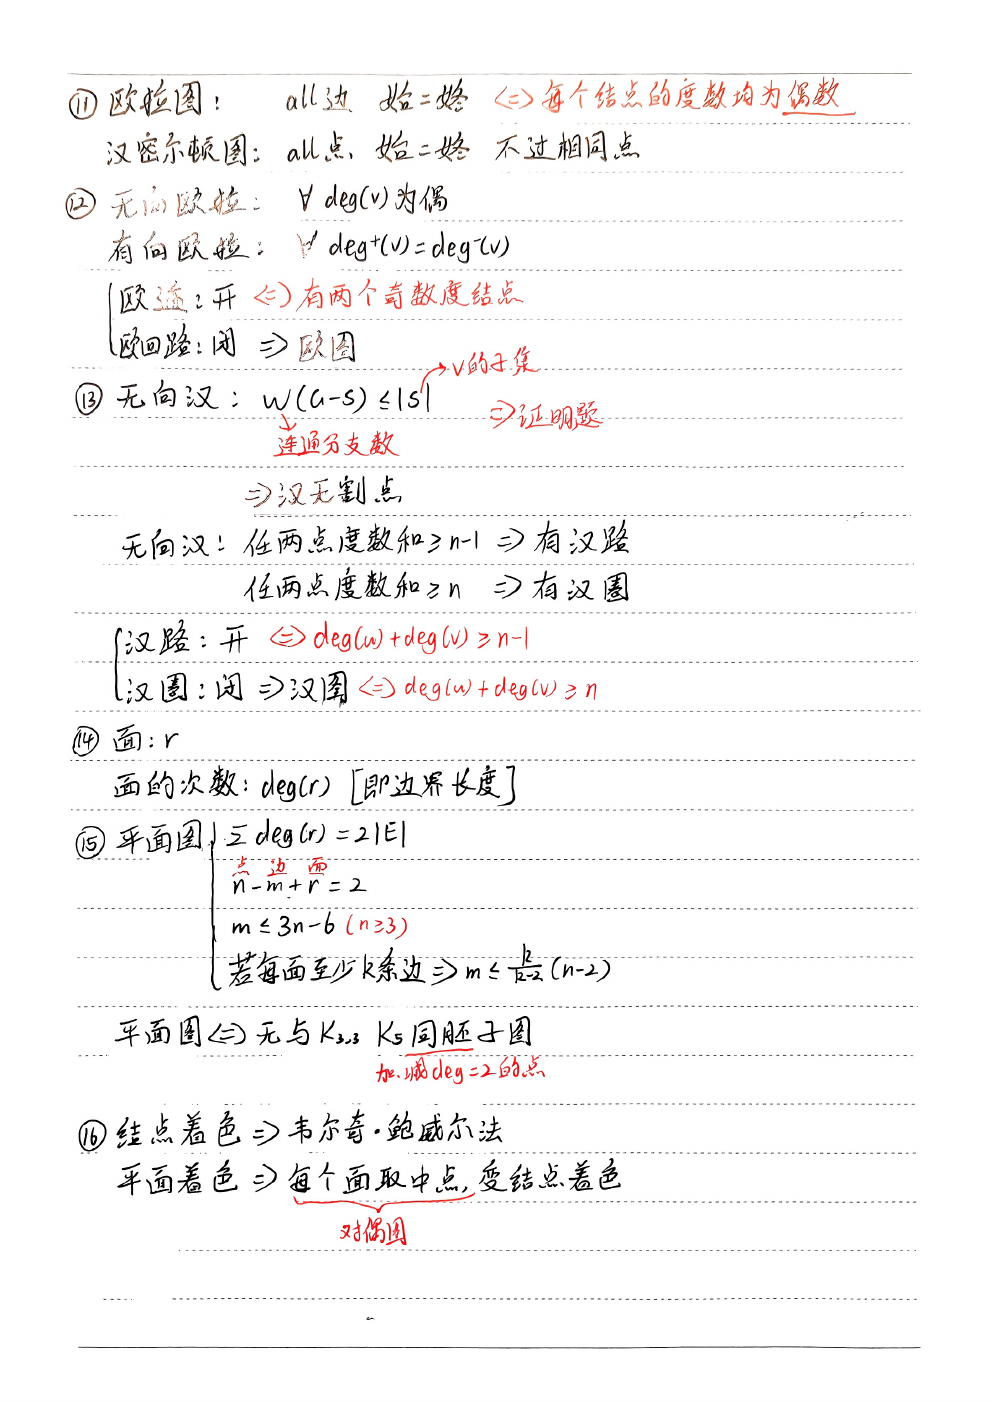 ⑪ 欧拉图： all边 始=终 <=> 每个结点的度数均为偶数
汉密尔顿图： all点、 始=终 不过相同点
⑫ 无向欧拉： ∀ deg(v)为偶
有向欧拉： ∀ deg⁺(v)=deg⁻(v)
欧通：开 <=> 有两个奇数度结点
欧回路：闭 => 欧图
V的子集
⑬ 无向汉： W(G-S) ≤ |S| => 证明题
连通分支数
=> 汉无割点
无向汉： 任两点度数和≥n-1 => 有汉路
任两点度数和≥n => 有汉圈
汉路：开 <=> deg(u)+deg(v)≥n-1
汉圈：闭 => 汉图 <=> deg(u)+deg(v)≥n
⑭ 面：r
面的次数：deg(r) [即边界长度]
⑮ 平面图 Σdeg(r)=2|E|
点 边 面
n-m+r=2
m≤3n-6 (n≥3)
若每面至少k条边 => m≤k/(k-2)(n-2)
平面图<=>无与K₃,₃ K₅同胚子图
加、减deg=2的点
⑯ 结点着色 => 韦尔奇·鲍威尔法
平面着色 => 每个面取中点，变结点着色
对偶图